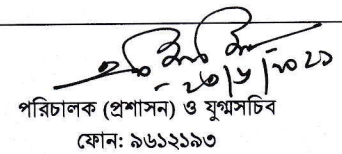 ২০/৬/২০২১
পরিচালক (প্রশাসন) ও যুগ্মসচিব
ফোন: ৯৬১২১৯৩